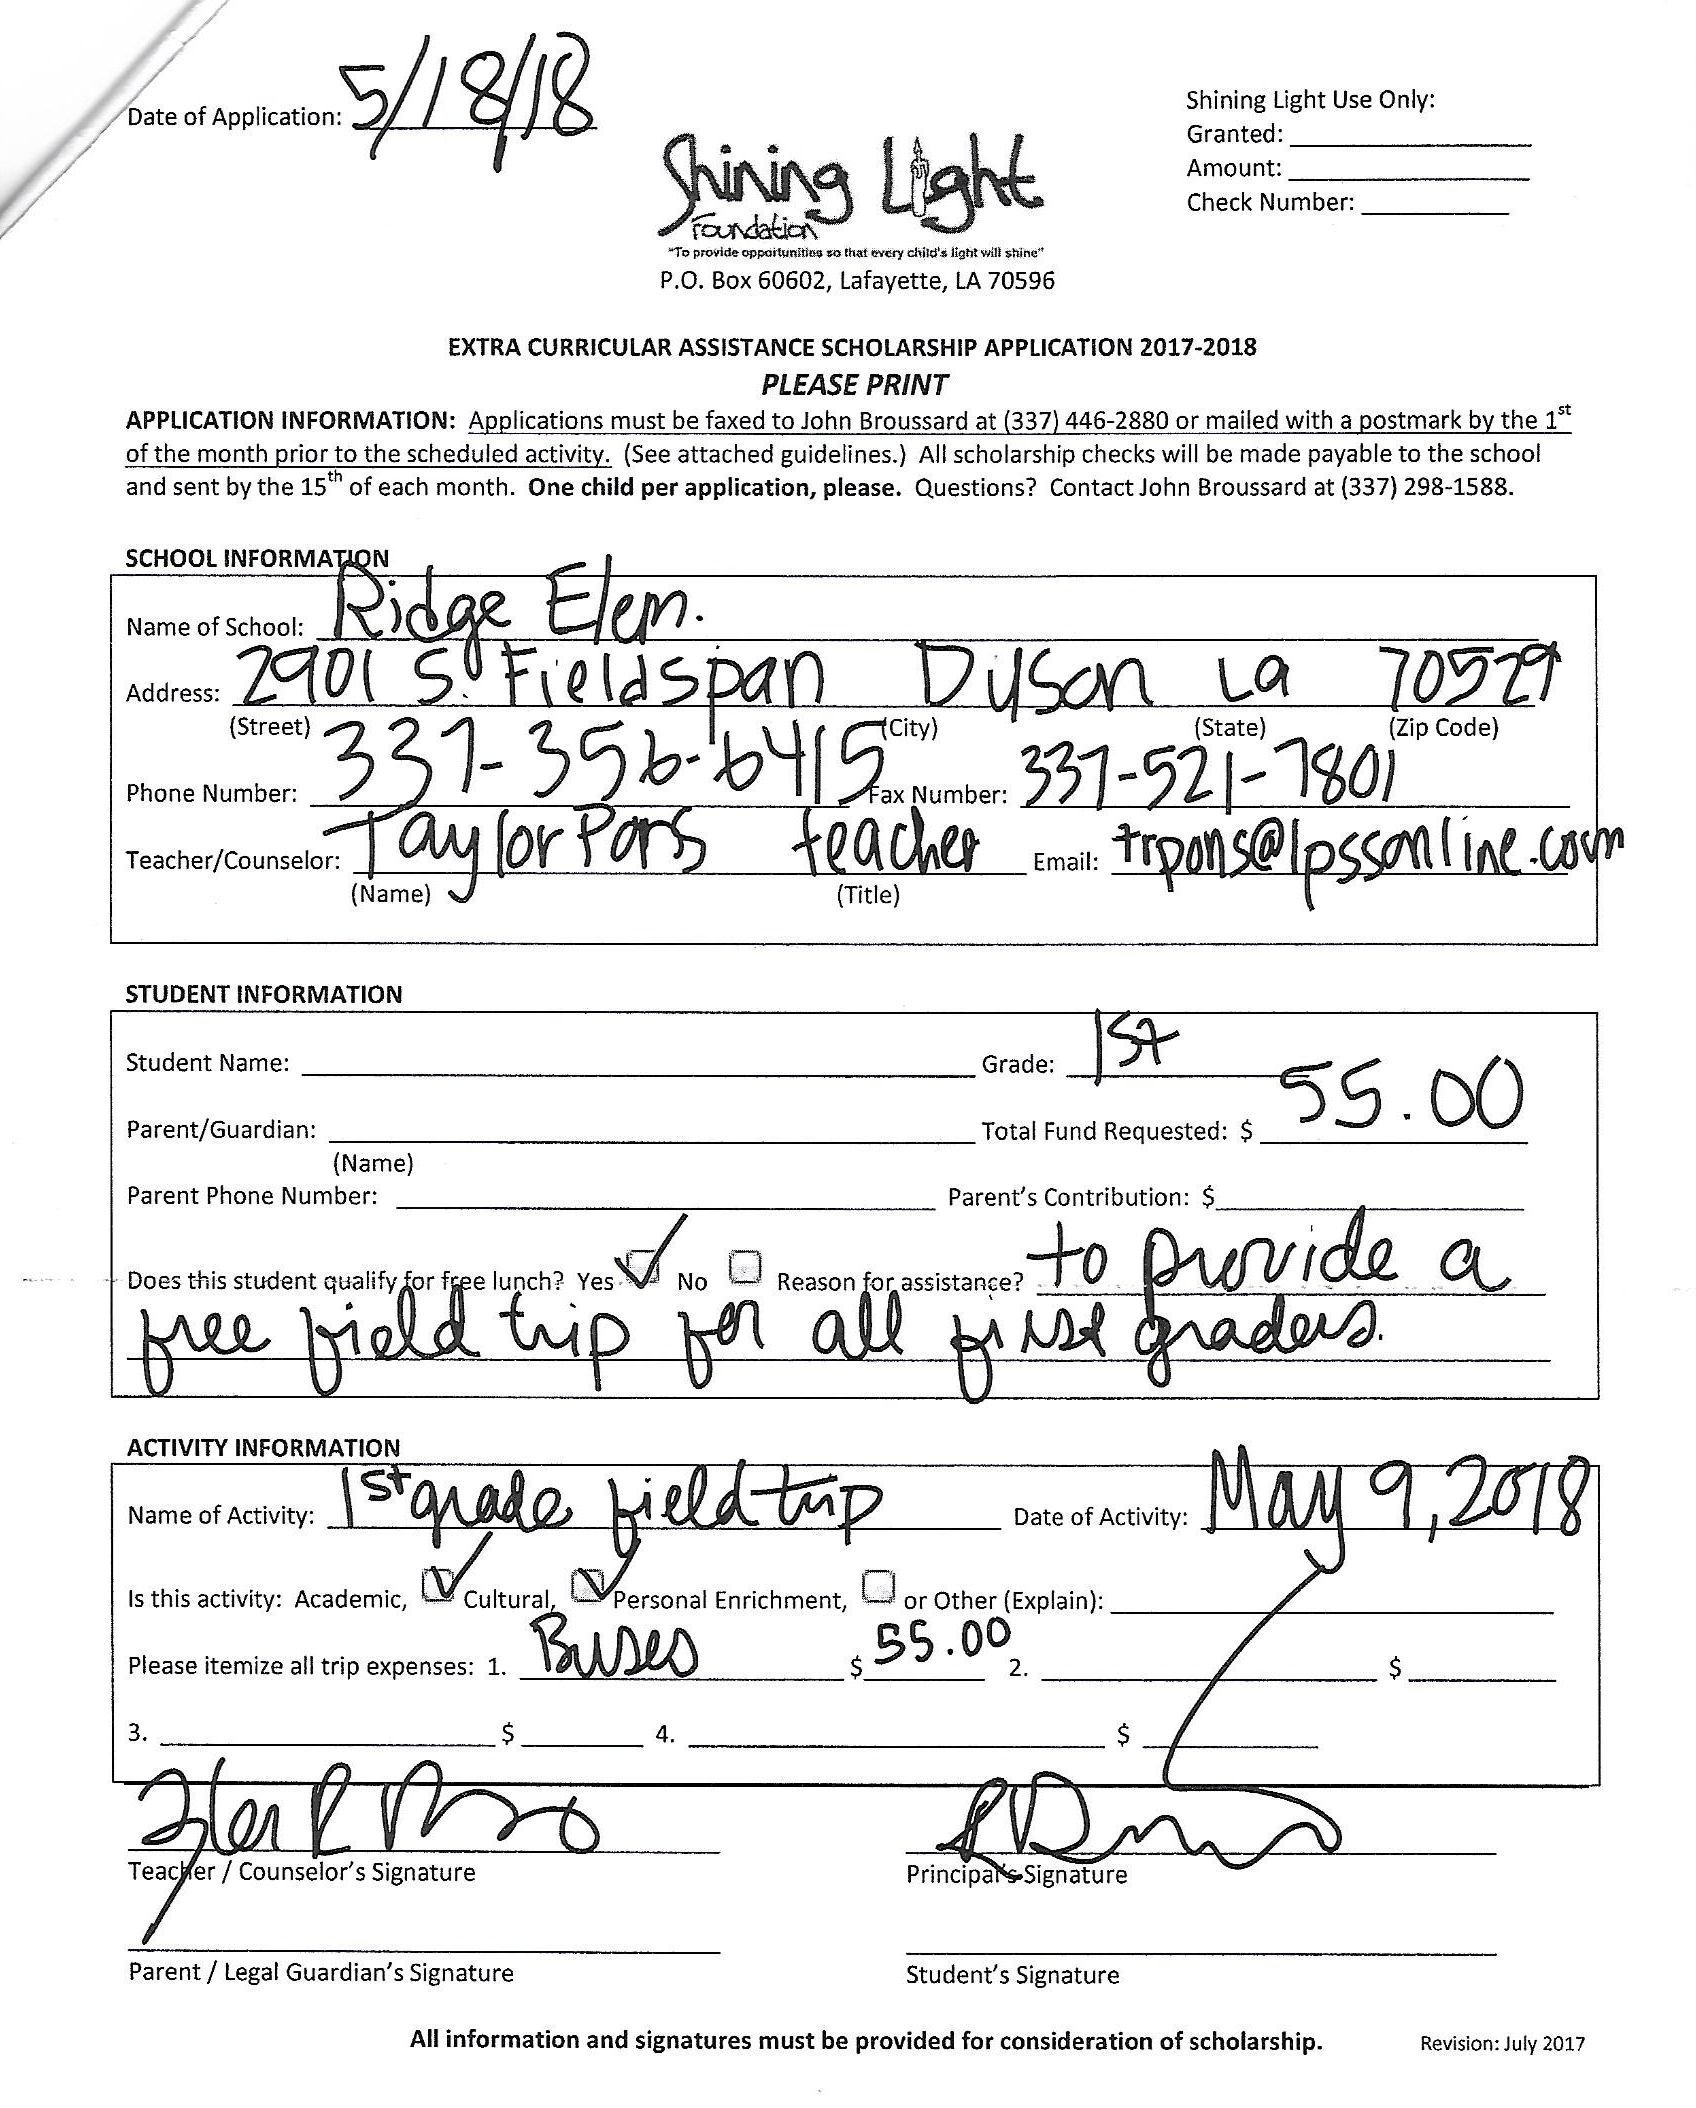 Date of Application: 5/18/18
Shining Light Use Only:
Granted:
Amount:
Check Number:
Shining Light
Foundation
"To provide opportunities so that every child's light will shine"
P.O. Box 60602, Lafayette, LA 70596
EXTRA CURRICULAR ASSISTANCE SCHOLARSHIP APPLICATION 2017-2018
PLEASE PRINT
APPLICATION INFORMATION: Applications must be faxed to John Broussard at (337) 446-2880 or mailed with a postmark by the 1st
of the month prior to the scheduled activity. (See attached guidelines.) All scholarship checks will be made payable to the school
and sent by the 15th of each month. One child per application, please. Questions? Contact John Broussard at (337) 298-1588.
SCHOOL INFORMATION
Name of School: Ridge Elem.
Address: 2901 S. Fieldspan Duson La 70529
(Street) (City) (State) (Zip Code)
Phone Number: 337-356-6415 Fax Number: 337-521-7801
Teacher/Counselor: Taylor Pons teacher Email: trpons@lpssonline.com
(Name) (Title)
STUDENT INFORMATION
Student Name: Grade: 1st
Parent/Guardian: Total Fund Requested: $ 55.00
(Name)
Parent Phone Number: Parent's Contribution: $
Does this student qualify for free lunch? Yes No Reason for assistance? to provide a
free field trip for all first graders.
ACTIVITY INFORMATION
Name of Activity: 1st grade field trip Date of Activity: May 9, 2018
Is this activity: Academic, Cultural, Personal Enrichment, or Other (Explain):
Please itemize all trip expenses: 1. Buses $ 55.00 2. $
3. $ 4. $
Teacher / Counselor's Signature Principal's Signature
Parent / Legal Guardian's Signature Student's Signature
All information and signatures must be provided for consideration of scholarship. Revision: July 2017